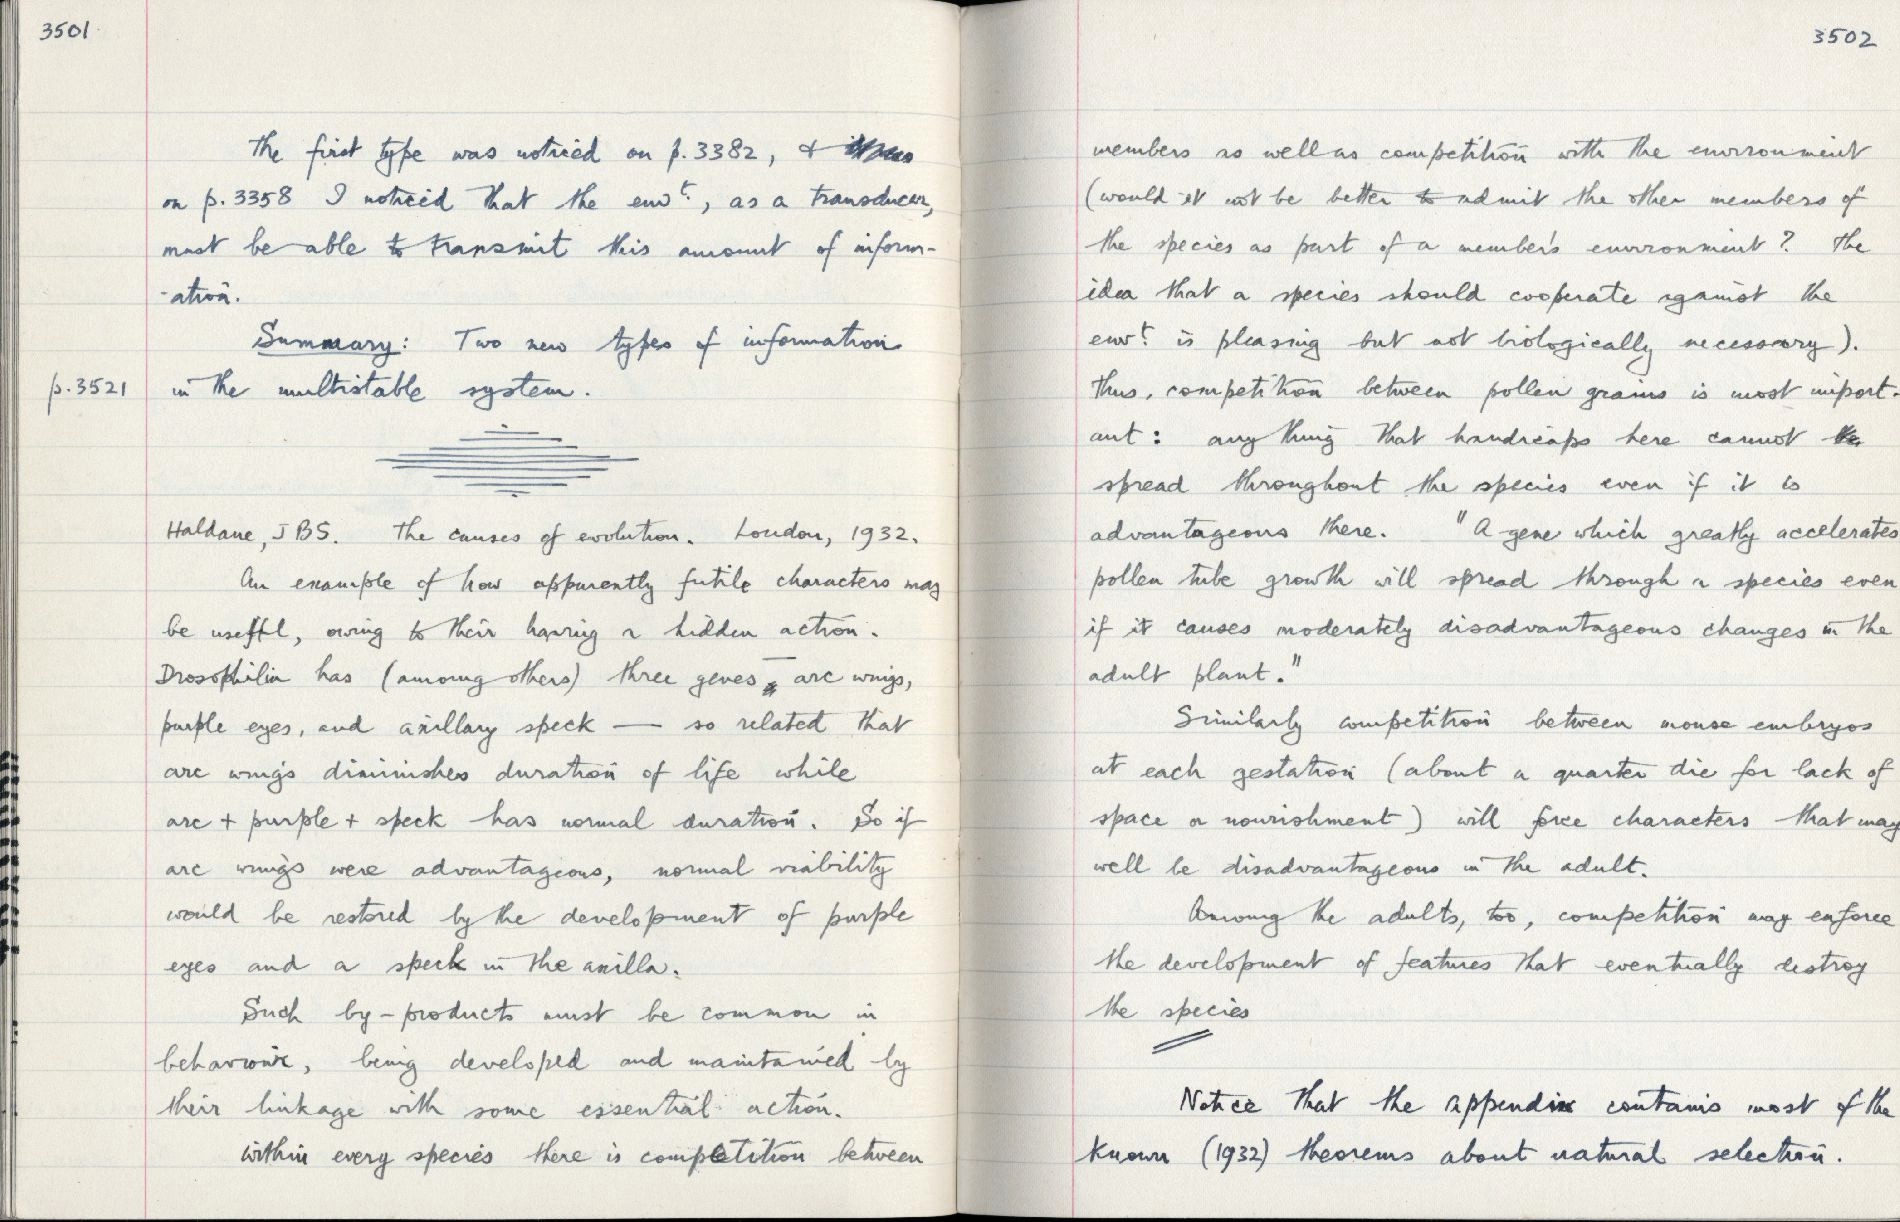 3501
The first type was noticed on p. 3382, &
on p. 3358 I noticed that the envt, as a transducer,
must be able to transmit this amount of inform-
-ation.
Summary: Two new types of information
p. 3521 in the multistable system.
Haldane, JBS. The causes of evolution. London, 1932.
An example of how apparently futile characters may
be useful, owing to their having a hidden action.
Drosophilia has (among others) three genes, arc wings,
purple eyes, and axillary speck — so related that
arc wings diminishes duration of life while
arc + purple + speck has normal duration. So if
arc wings were advantageous, normal viability
would be restored by the development of purple
eyes and a speck in the axilla.
Such by-products must be common in
behaviour, being developed and maintained by
their linkage with some essential action.
Within every species there is competition between
3502
members as well as competition with the environment
(would it not be better to admit the other members of
the species as part of a member's environment? The
idea that a species should cooperate against the
envt is pleasing but not biologically necessary).
Thus, competition between pollen grains is most import-
ant: any thing that handicaps here cannot
spread throughout the species even if it is
advantageous there. "A gene which greatly accelerates
pollen tube growth will spread through a species even
if it causes moderately disadvantageous changes in the
adult plant."
Similarly competition between mouse embryos
at each gestation (about a quarter die for lack of
space or nourishment) will force characters that may
well be disadvantageous in the adult.
Among the adults, too, competition may enforce
the development of features that eventually destroy
the species
Notice that the appendix contains most of the
known (1932) theorems about natural selection.